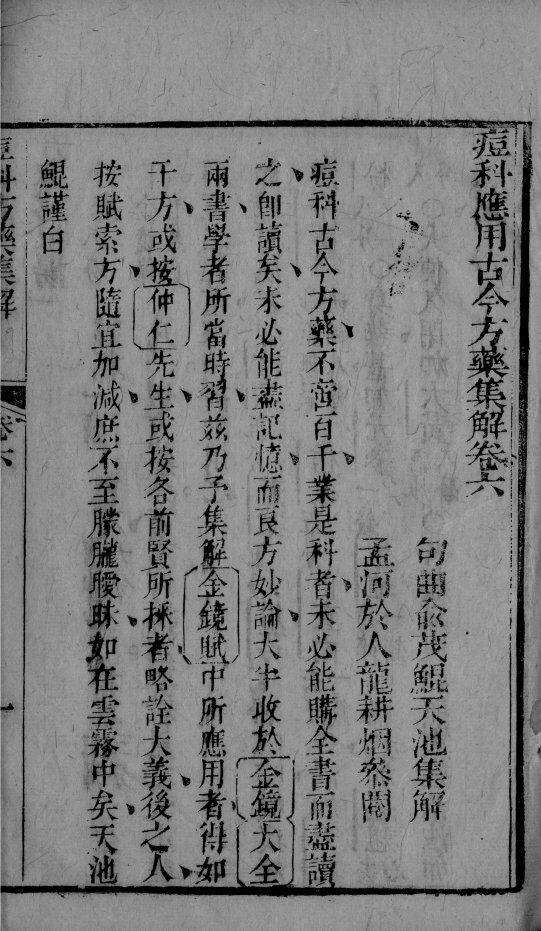 痘科應用古今方藥集解卷六
句曲俞茂鯤天池集解
孟河於人龍耕烟叅閱
痘科古今方藥不啻百千業是科者未必能購全書而盡讀
之卽讀矣未必能盡記憶而良方妙論大半收於金鏡大全
兩書學者所當時習兹乃予集解金鏡賦中所應用者得如
干方或按仲仁先生或按各前賢所採者略詮大義後之人
按賦索方隨宜加減庶不至朦朧曖昧如在雲霧中矣天池
鯤謹白
痘科方藥集解
卷六
一